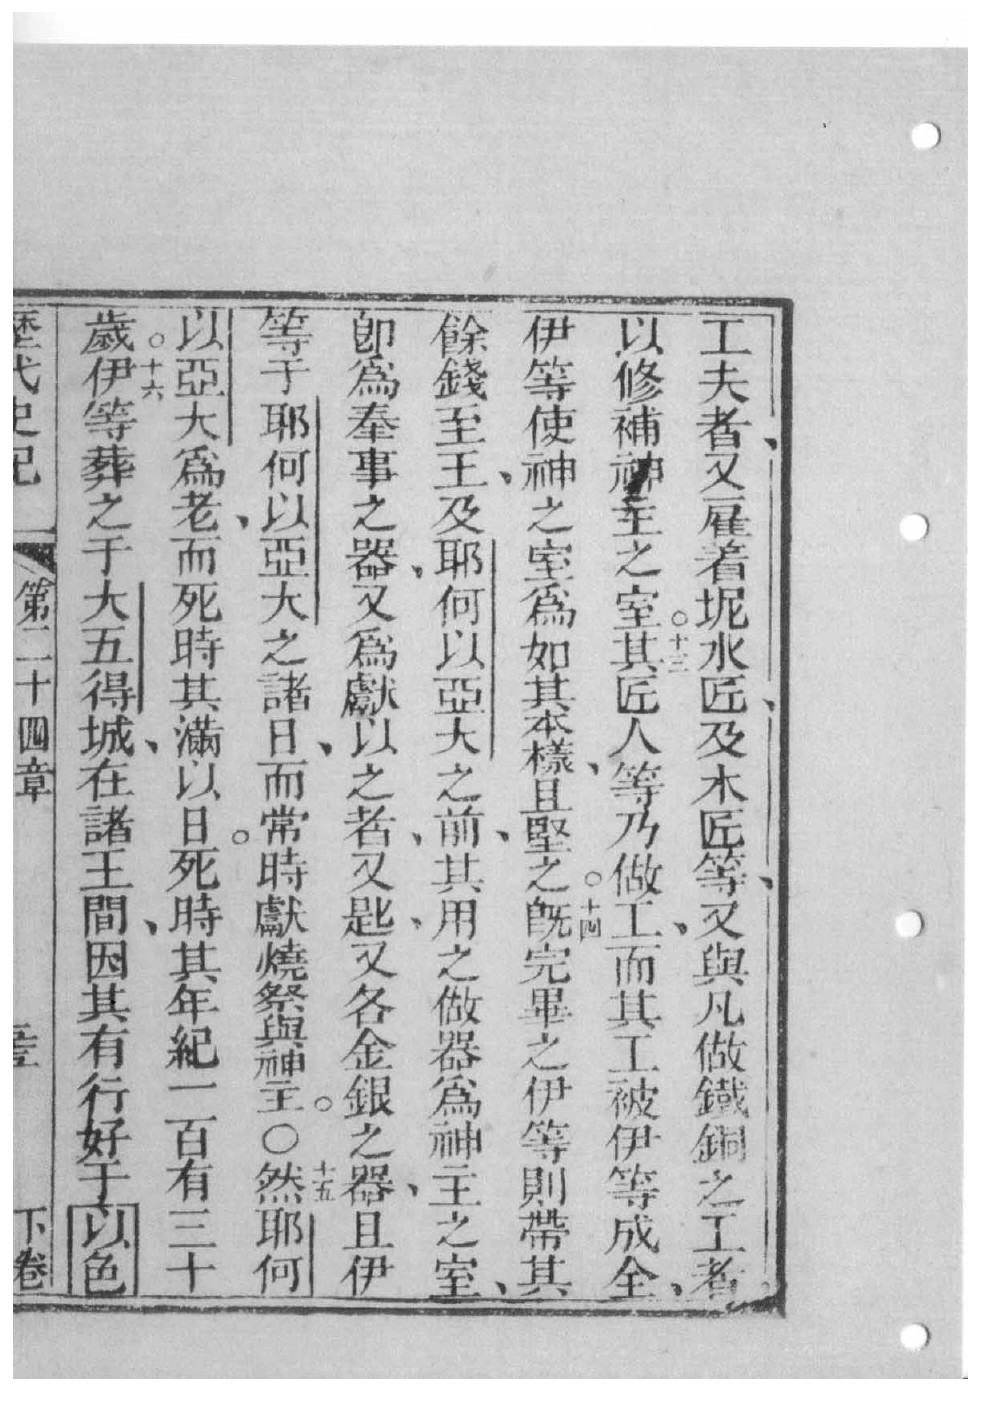 工夫者、又雇着坭水匠、及木匠等、又與凡做鐵銅之工者、
以修補神主之室。十三其匠人等乃做工、而其工被伊等成全、
伊等使神之室爲如其本樣、且堅之。十四旣完畢之伊等則帶其
餘錢至王、及耶何以亞大之前、其用之做器爲神主之室、
卽爲奉事之器、又爲獻以之者、又匙、又各金銀之器、且伊
等于耶何以亞大之諸日、而常時獻燒祭與神主。○十五然耶何
以亞大爲老、而死時其滿以日。死時其年紀一百有三十
歲。十六伊等葬之于大五得城、在諸王間、因其有行好于以色
歷代史記 第二十四章 下卷